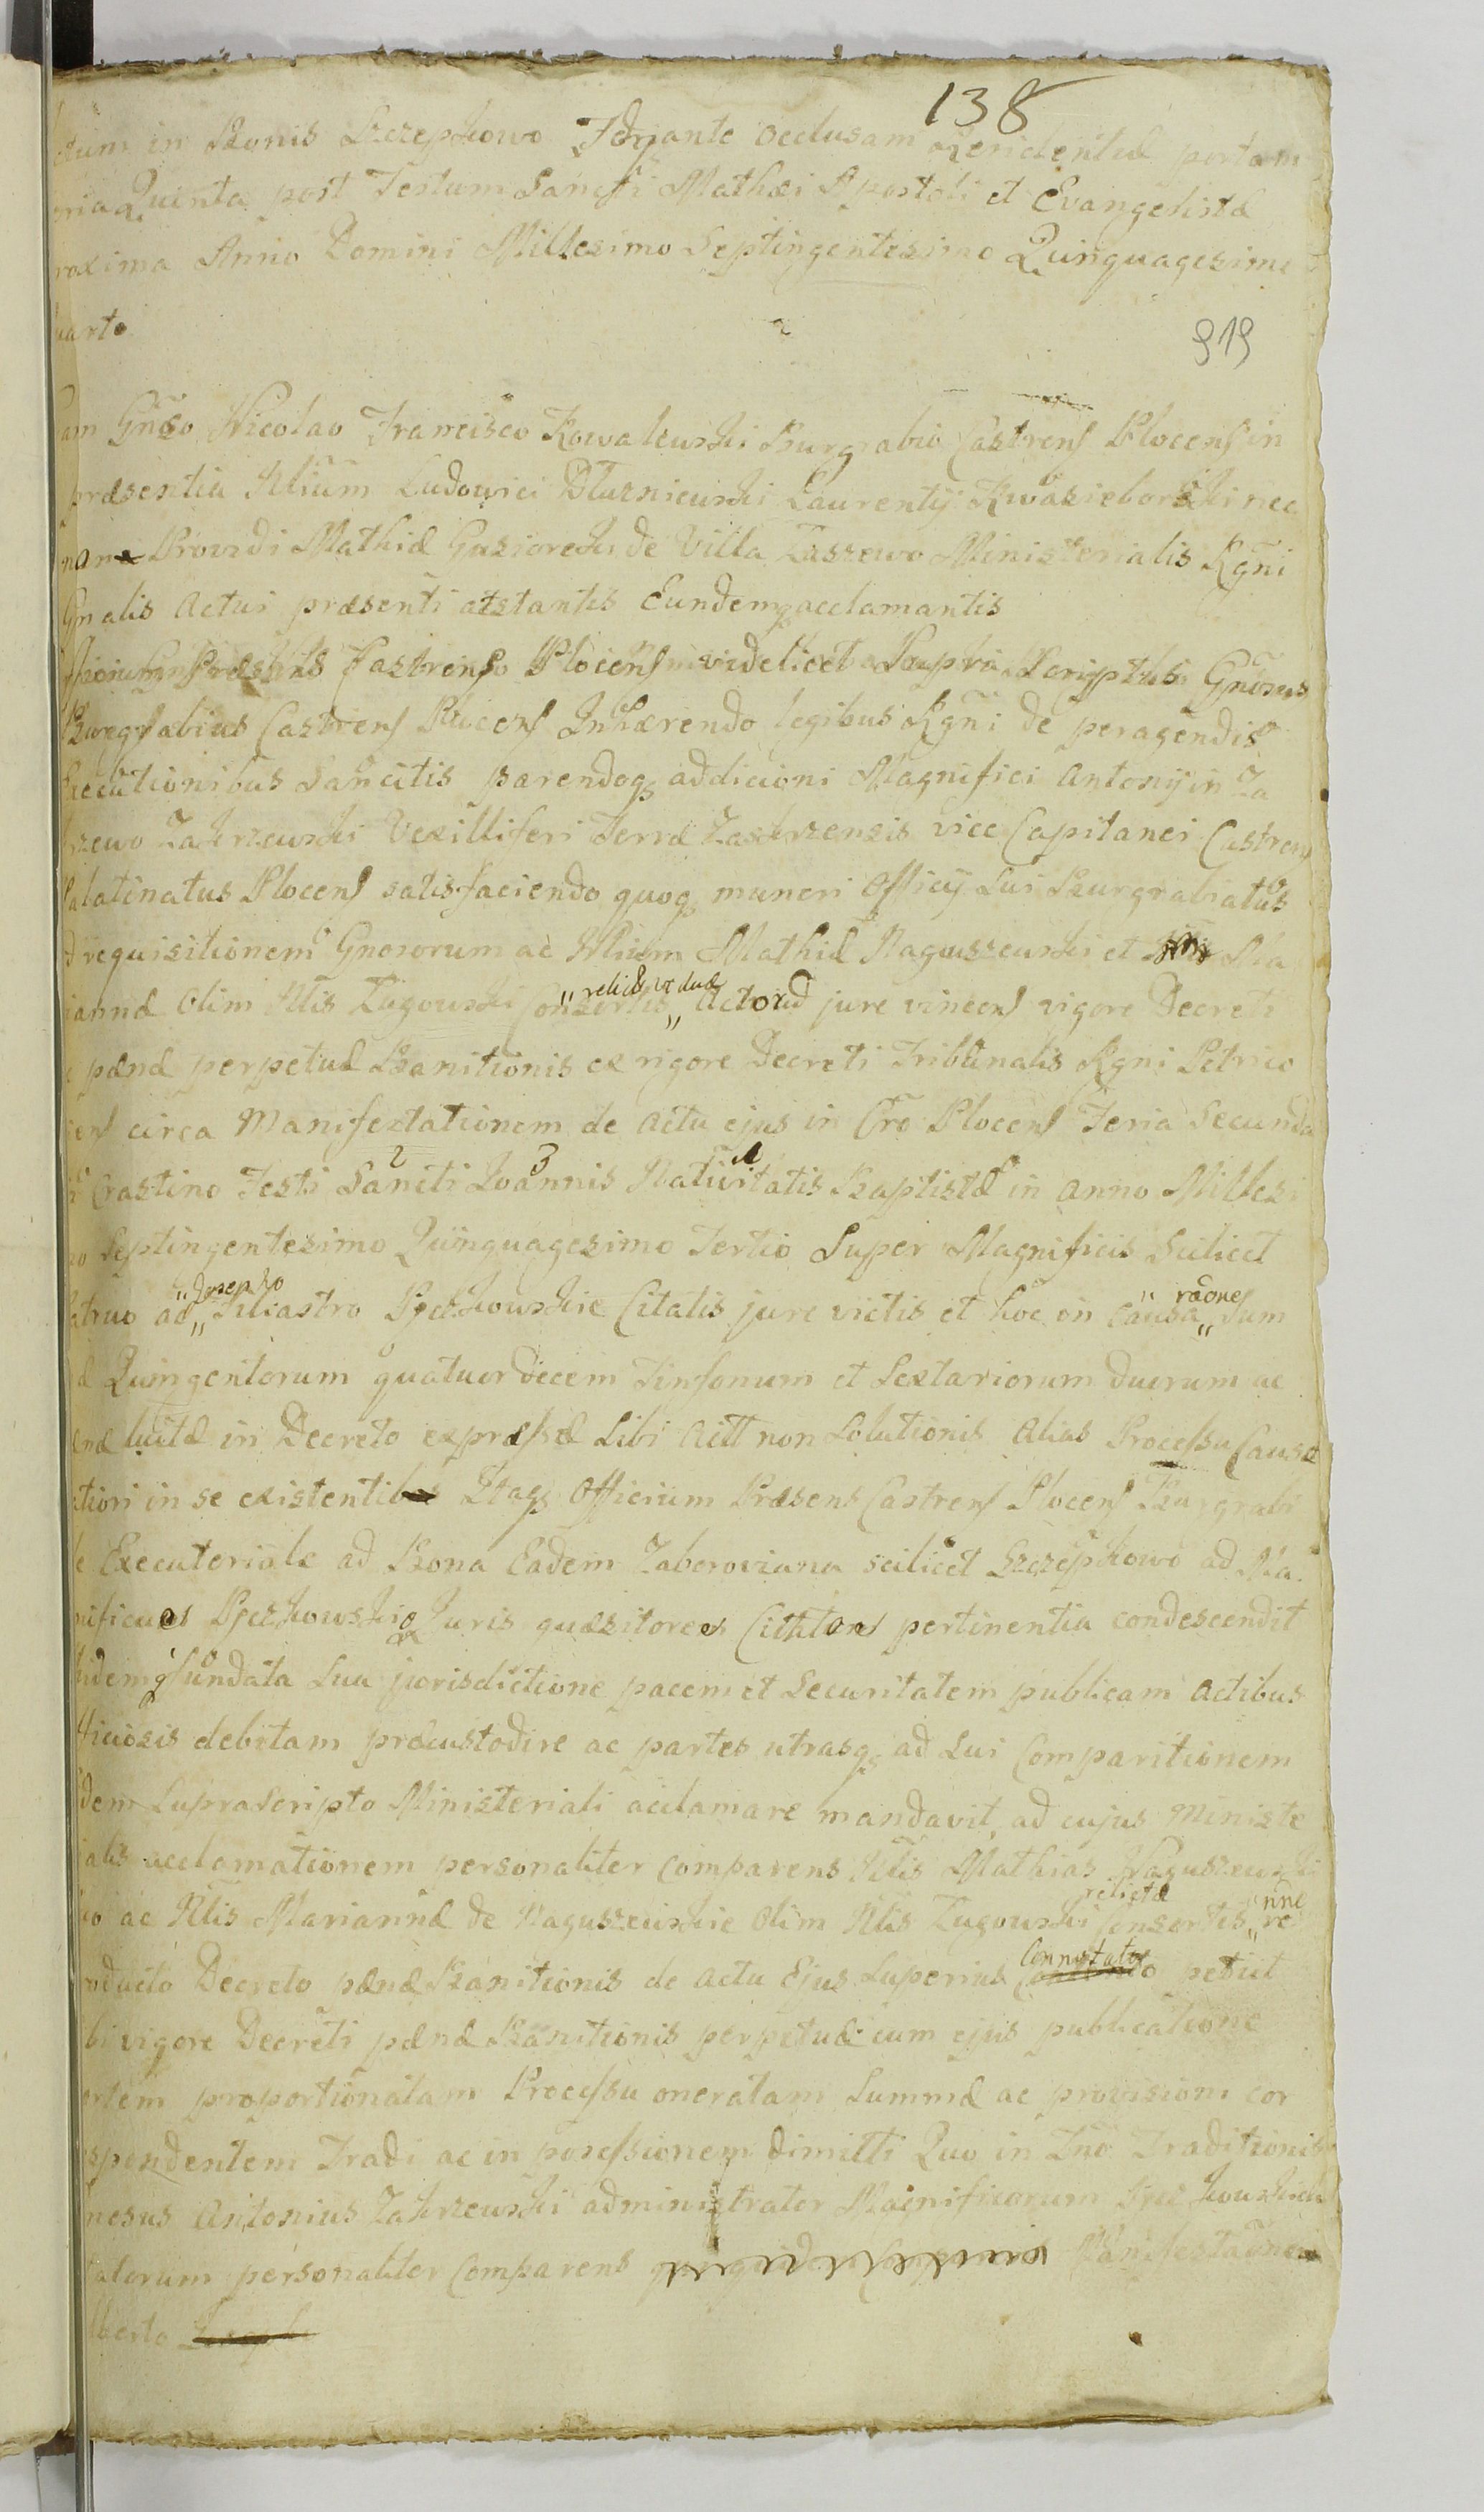 138
ctum in Bonis Szczepkowo Iδ ante occlusam Residentiæ portam
eria Quinta post Festum Sancti Mathæi Apostoli et Evangelistæ
roxima Anno Domini Millesimo Septingentesimo Quinquagesimo
uarto
919
am Gnõso Nicolao Francisco Kowalewski Burgrabio Castrens Plocens in
præsentia Nlium Ludovici Bluzniewski Laurentij Kwasieborski nec
non Providi Mathiæ Gasiorek de Villa Taszewo Ministerialis Rgñi
Gnalis actui præsenti atstantis Eundemq acclamantis
Officium Præsens Castrense Plocens videlicet Supra Scriptus Gnosus
Burgrabius Castrens Plocens Inhærendo legibus Rgñi de peragendis
Executionibus Sancitis parendoq addicioni Magnifici Antonij in Za
krzewo Zakrzewski Vexilliferi Terræ Zakrzensis Vice Capitanei Castrens
Palatinatus Plocens satisfaciendo quoq muneri Officij Sui Burgrabiatus
d requisitionem Gnosorum ac Nlium Mathiæ Naguszewski et Ma
iannæ Olim Nlis Zugowski Consortis „ relictæ viduæ „ Actoruũ jure vincens vigore Decreti
pænæ perpetuæ Banitionis ex rigore Decreti Tribunalis Rgni Petrico
iens circa Manifestationem de actu ejus in Cro Plocens Feria Secunda
Crastino Festi Sancti 2 Joannis 3 Nativitatis 1 Baptistæ in anno Millesi
mo Septingentesimo Quinquagesimo Tertio Super Magnificis Scilicet
atruo ac „ Josepho „ Filiastro Pęczkowskie Citatis jure victis et hoc in Causa „ raõne „ Sum
æ Quingentorum quatuordecem Tinfonum et Sextariorum duorum ac
ænæ luitæ in Decreto expressæ Sibi Actt non Solutionis alias Processu Causæ
ationi in se existentibus Itaq Officium Præsens Castrens Plocens Burgrabi
le Executoriale ad Bona Eadem Zaboroviana scilicet Szczepkowo ad Ma
nificos Pęczkowskie Juris quæsitores Cittos pertinentia condescendit
ibidemq fundata Sua jurisdictione pacem et Securitatem publicam actibus
fficiosis debitam præcustodire ac partes utrasq ad Sui Comparitionem
idem Suprascripto Ministeriali acclamare mandavit, ad cujus Ministe
rialis acclamationem personaliter Comparens Nlis Mathias Naguszewski
uo ac Nlis Mariannæ de Naguszewskie Olim Nlis Zugowski relictæ Consortis „ nne „ re
roducto Decreto pænæ Banitionis de actu Ejus Superius Connotato petiit
ibi vigore Decreti pænæ Banitionis perpetuæ cum ejus publicatione
ortem proportionatam Processu oneratam Summæ ac provisioni cor
espondentem Tradi ac in possessionem dimitti Quo in Tno Traditionis
nosus Antonius Zakrzewski administrator Magnificorum Pęczkowskich
itatorum personaliter Comparens Manifestaõnem
lberto